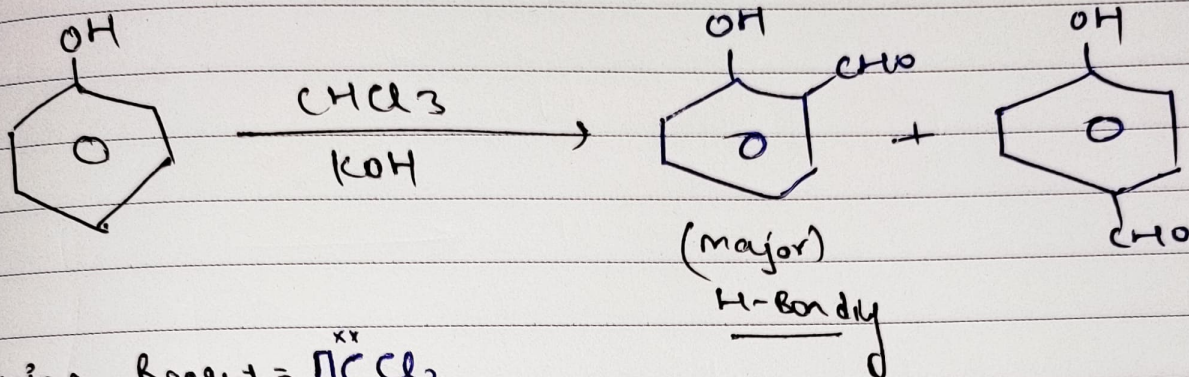 OH OH OH
CHCl3 CHO
KOH +
CHO
(major)
H-Bonding